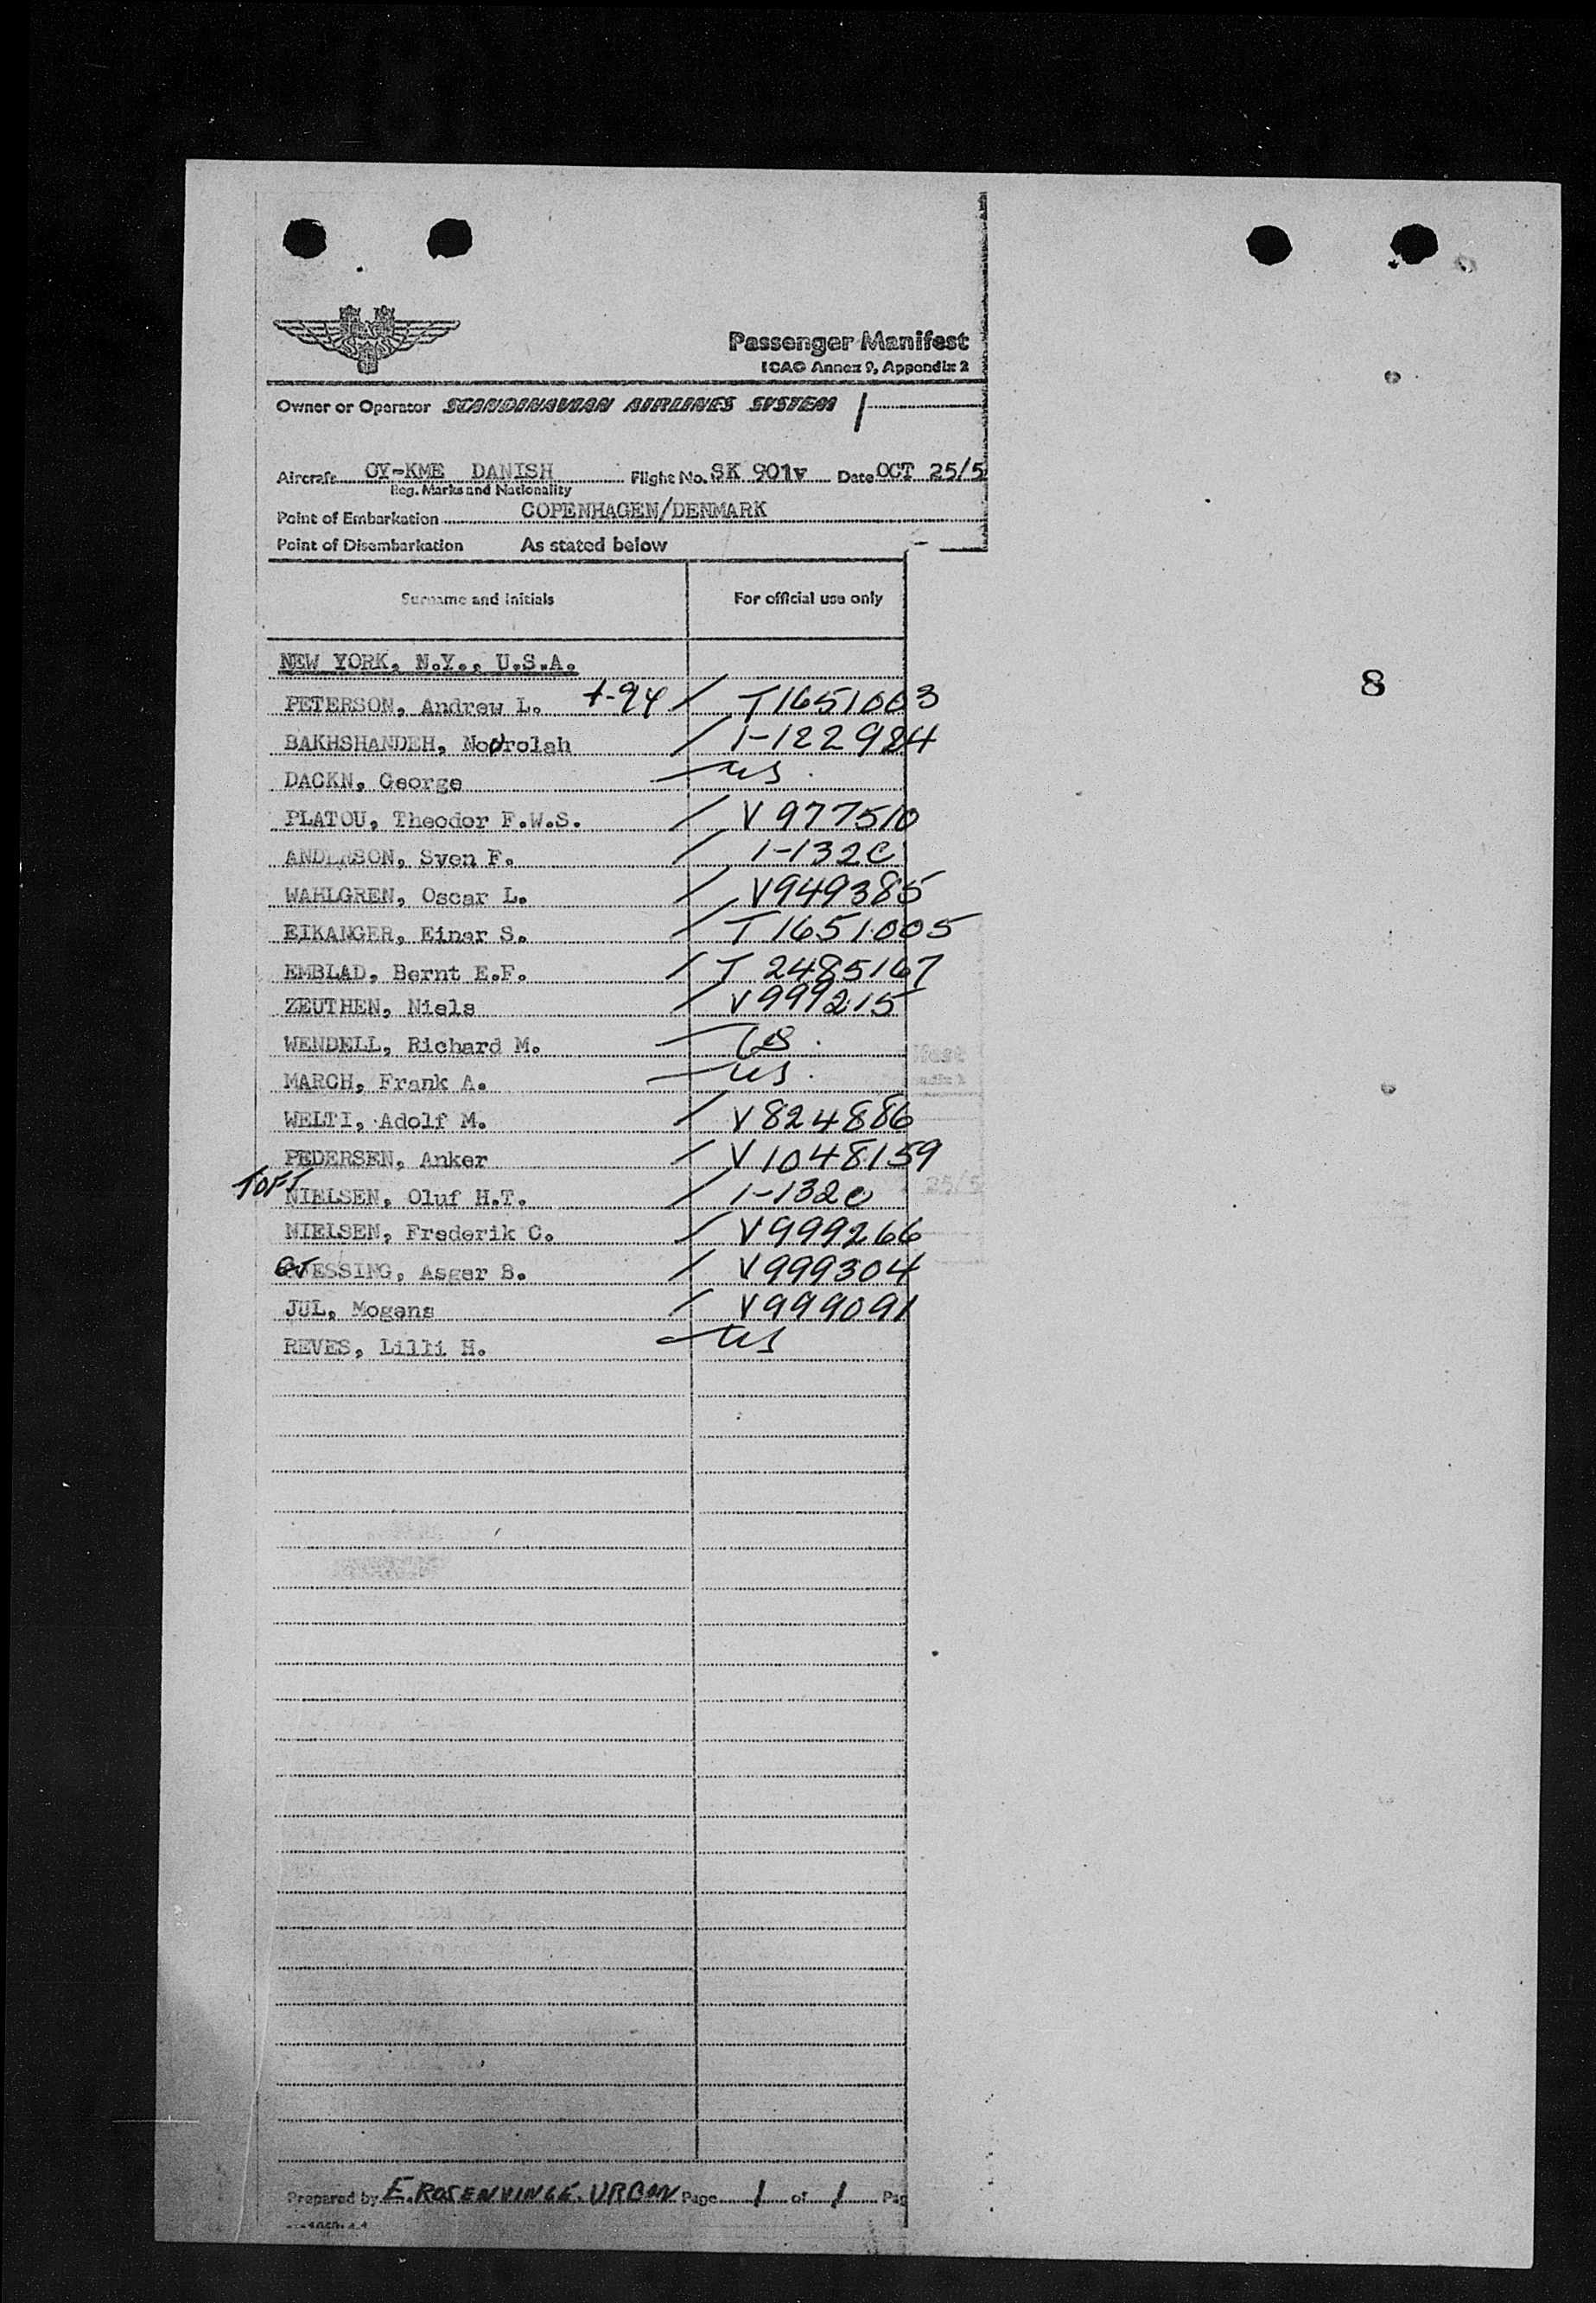 Passenger Manifest
ICAO Annex 9, Appendix 2
Owner or Operator SCANDINAVIAN AIRLINES SYSTEM /
Aircraft OY-KME DANISH Flight No. SK 901v Date OCT 25/5
Reg. Marks and Nationality
Point of Embarkation COPENHAGEN/DENMARK
Point of Disembarkation As stated below
Surname and Initials For official use only
NEW YORK, N.Y., U.S.A.
8
PETERSON, Andrew L. +-94 / T1651003
BAKHSHANDEH, Noorolah / 1-122984
DACKN, George — us.
PLATOU, Theodor F.W.S. / V977510
ANDERSON, Sven F. / 1-132C
WAHLGREN, Oscar L. / V949385
EIKANGER, Einar S. / T1651005
EMBLAD, Bernt E.F. / T2485167
ZEUTHEN, Niels / V999215
WENDELL, Richard M. — us.
MARCH, Frank A. — us.
WELTI, Adolf M. / V824886
PEDERSEN, Anker / V1048159
TOFT NIELSEN, Oluf H.T. / 1-132C
NIELSEN, Frederik C. / V999266
GJESSING, Asger B. / V999304
JUL, Mogens / V999091
REVES, Lilli H. — us
Prepared by E. ROSENVINGE. URBAN Page 1 of 1 Pag